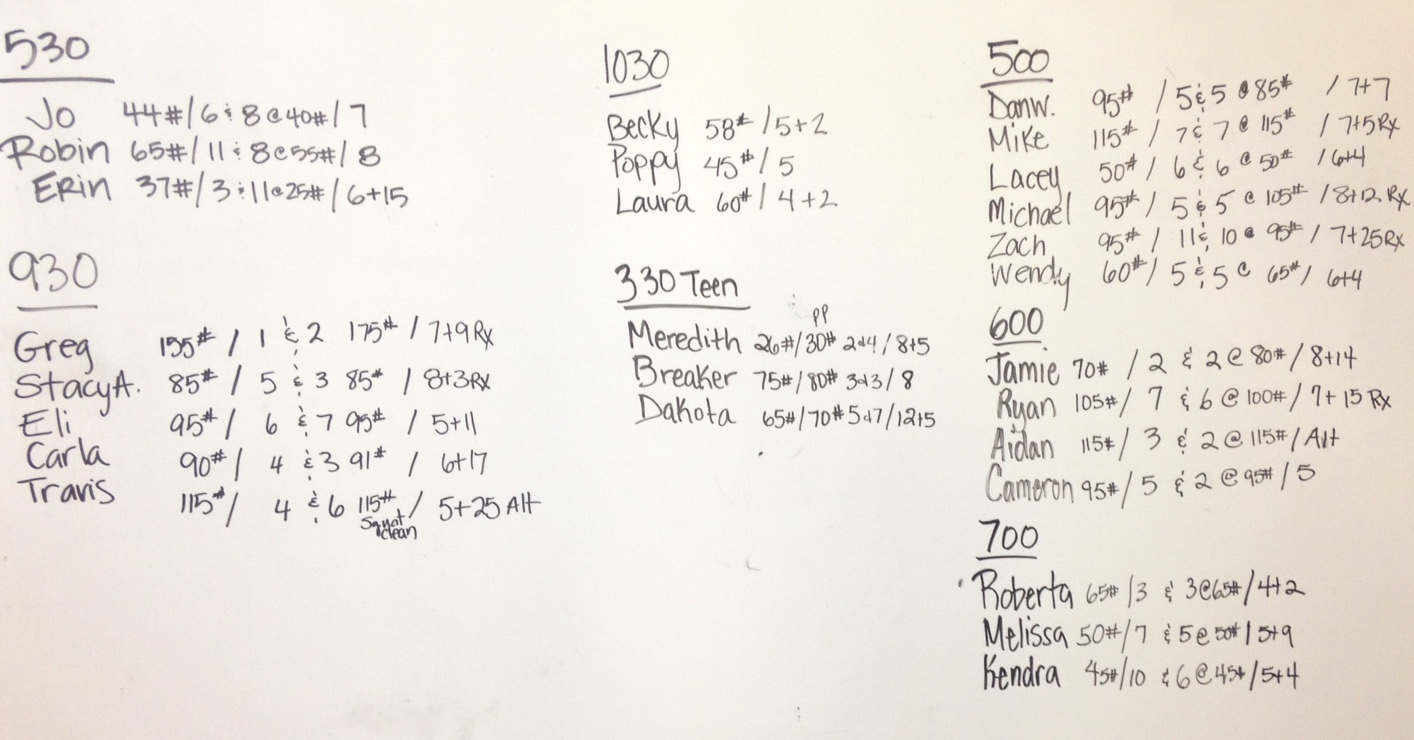 530
Jo 44#/6 & 8@40#/7
Robin 65#/11 & 8@55#/8
Erin 37#/3 & 11@25#/6+15
930
Greg 155#/ 1 & 2 175#/ 7+9 Rx
Stacy A. 85#/ 5 & 3 85#/ 8+3 Rx
Eli 95#/ 6 & 7 95#/ 5+11
Carla 90#/ 4 & 3 91#/ 6+17
Travis 115#/ 4 & 6 115#/ 5+25 Alt
Squat
clean
1030
Becky 58#/5+2
Poppy 45#/5
Laura 60#/4+2
330 Teen
PP
Meredith 26#/30# 2&4/8+5
Breaker 75#/80# 3&3/8
Dakota 65#/70# 5&7/12+5
500
Dan W. 95#/ 5 & 5 @ 85#/ 7+7
Mike 115#/ 7 & 7 @ 115#/ 7+5 Rx
Lacey 50#/ 6 & 6 @ 50#/ 6+4
Michael 95#/ 5 & 5 @ 105#/ 8+12 Rx
Zach 95#/ 11 & 10 @ 95#/ 7+25 Rx
Wendy 60#/ 5 & 5 @ 65#/ 6+4
600
Jamie 70#/ 2 & 2 @ 80#/ 8+14
Ryan 105#/ 7 & 6 @ 100#/ 7+15 Rx
Aidan 115#/ 3 & 2 @ 115#/ Alt
Cameron 95#/ 5 & 2 @ 95#/ 5
700
Roberta 65#/3 & 3@65#/4+2
Melissa 50#/7 & 5@50#/5+9
Kendra 45#/10 & 6@45#/5+4